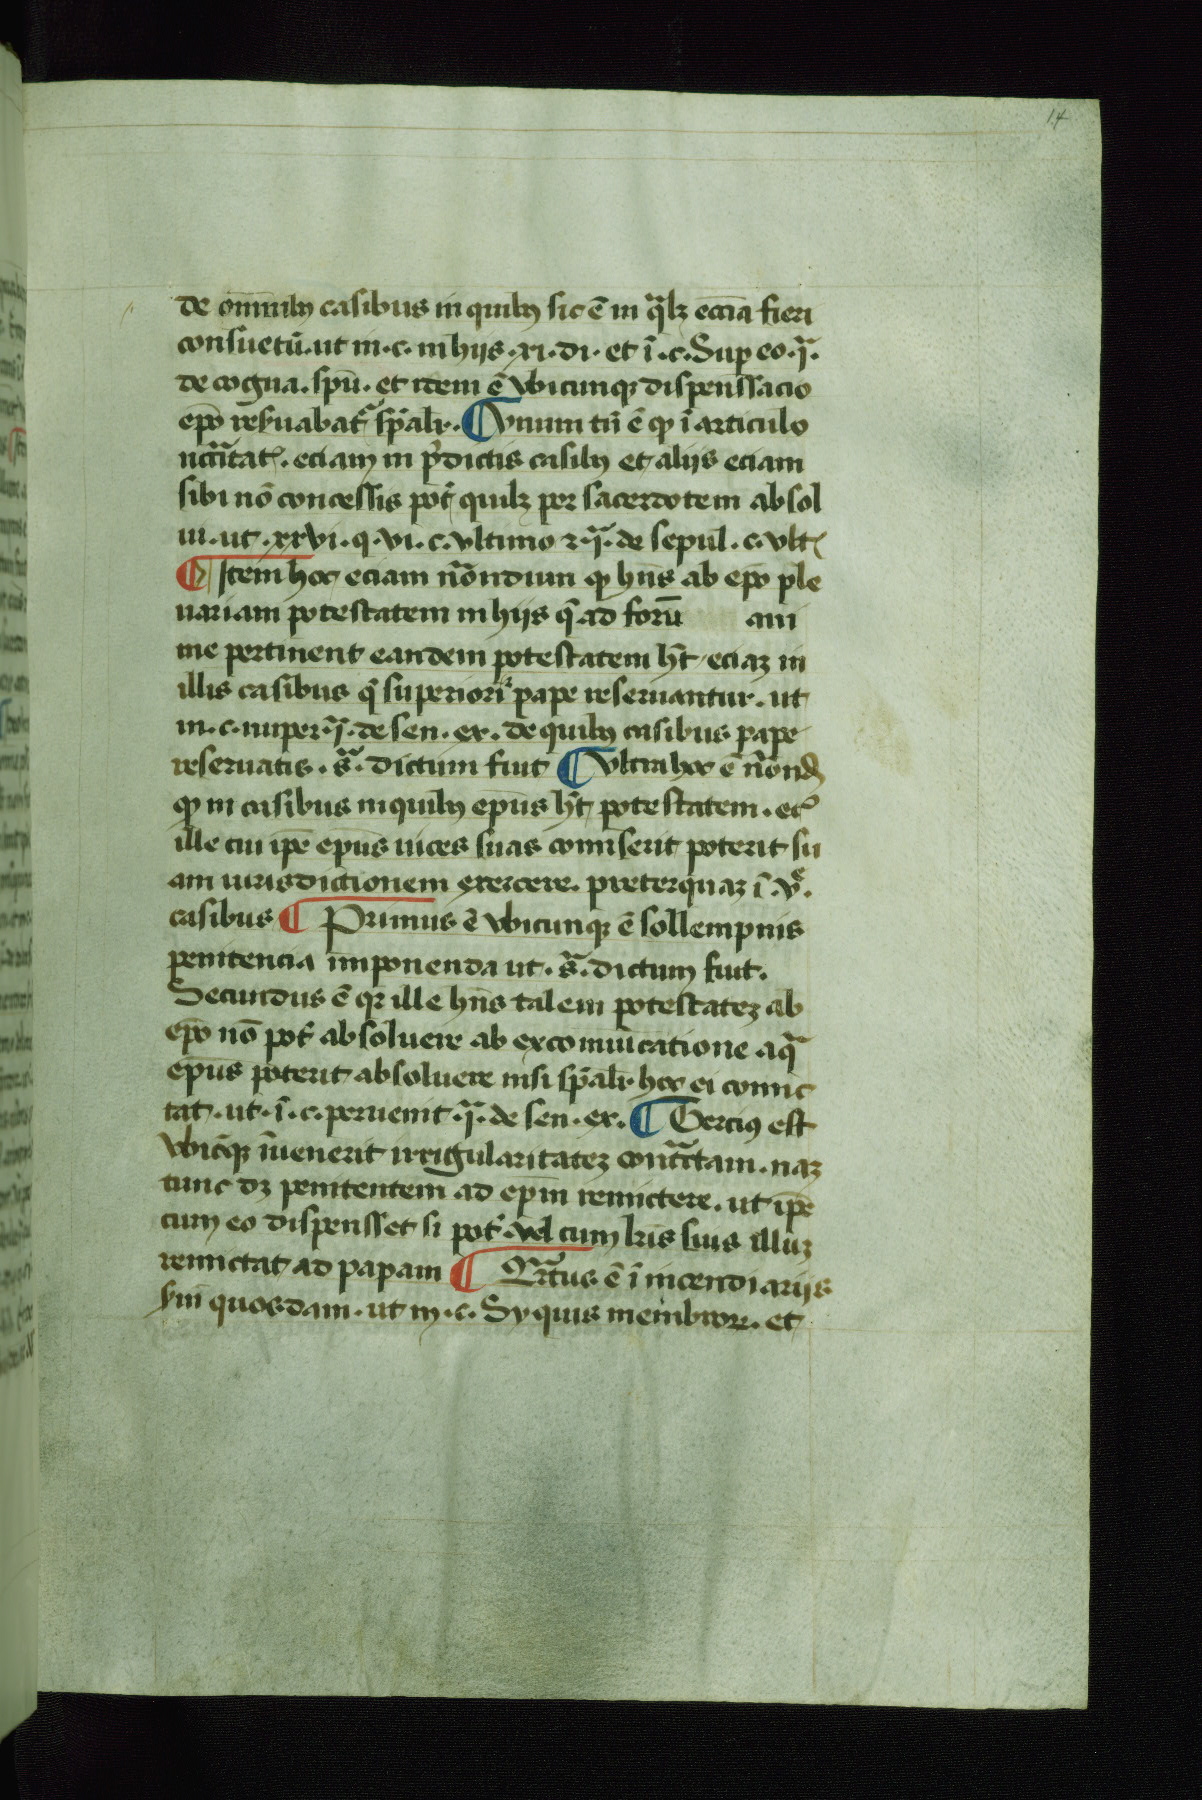 14
de om̄ibꝫ casibus in quibꝫ sic ē in qͣlꝫ eccīa fieri
consuetū. ut in .c. in hijs .xi. di. et ī .c. Sup eo .ꝗ̄.
de cogna. spū. et item ē vbicunqꝫ dispenssacio
ep̄o reẜuabatͬ sp̄alr̄. ¶ Vnum tn̄ ē qꝫ ī articulo
nccͣ̄itat. eciam in p̄dictis casibꝫ et alijs eciam
sibi nō concessis pōt quilꝫ per sacerdotem absol
ui. ut .xxvi. q. vi. c. vltimo ⁊ .de sepul. c. vlt
¶ Item hoc eciam nōndum qꝫ hn̄s ab ep̄o ple
nariam potestatem in hijs q̄ ad forū ani
me pertinent eandem potestatem hꝫt eciaꝫ in
illis casibus q̄ superiori pape reseruantur. ut
in .c. nuper .de sen. ex. de quibꝫ casibus pape
reseruatis .sͣ. dictum fuit ¶ Vltra hoc ē nōnd
qꝫ in casibus in quibꝫ ep̄us hꝫt potestatem. ec
ille cui ip̄e ep̄us uices suas comiserit poterit su
am iurisdictionem exercere. preterquaꝫ ī .v.
casibus ¶ Primus ē vbicunqꝫ ē sollempnis
penitencia imponenda ut .sͣ. dictum fuit.
Secundus ē qꝛ ille hn̄s talem potestateꝫ ab
ep̄o nō pōt absoluere ab excomūicatione a qͣ
ep̄us poterit absoluere nisi sp̄alr̄ hoc ei comic
tat. ut .ī .c. peruenit .de sen. ex. ¶ Tercius est
vbicūqꝫ īuenerit irregularitateꝫ contͣctam. naꝫ
tunc dꝫ penitentem ad ep̄m remictere. ut ip̄e
cum eo dispensset si pōt. vel cum lr̄is suis illuꝫ
remictat ad papam ¶ Qͣrtus ē ī incendiarijs
sm̄ quosdam. ut in .c. Sy quis membroꝝ. et